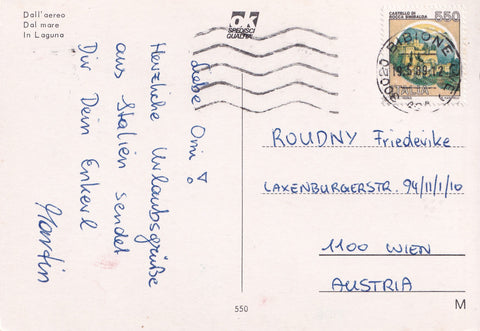 Dall'aereo
Dal mare
In Laguna
ok
SPEDISCI
QUALITÀ
CASTELLO DI
ROCCA SINIBALDA
550
ITALIA
30020 BIBIONE
Liebe Omi!
Herzliche Urlaubsgrüße
aus Italien sendet
Dir Dein Enkerl
Martin
ROUDNY Friederike
LAXENBURGERSTR. 94/11/1/10
1100 WIEN
AUSTRIA
550
M